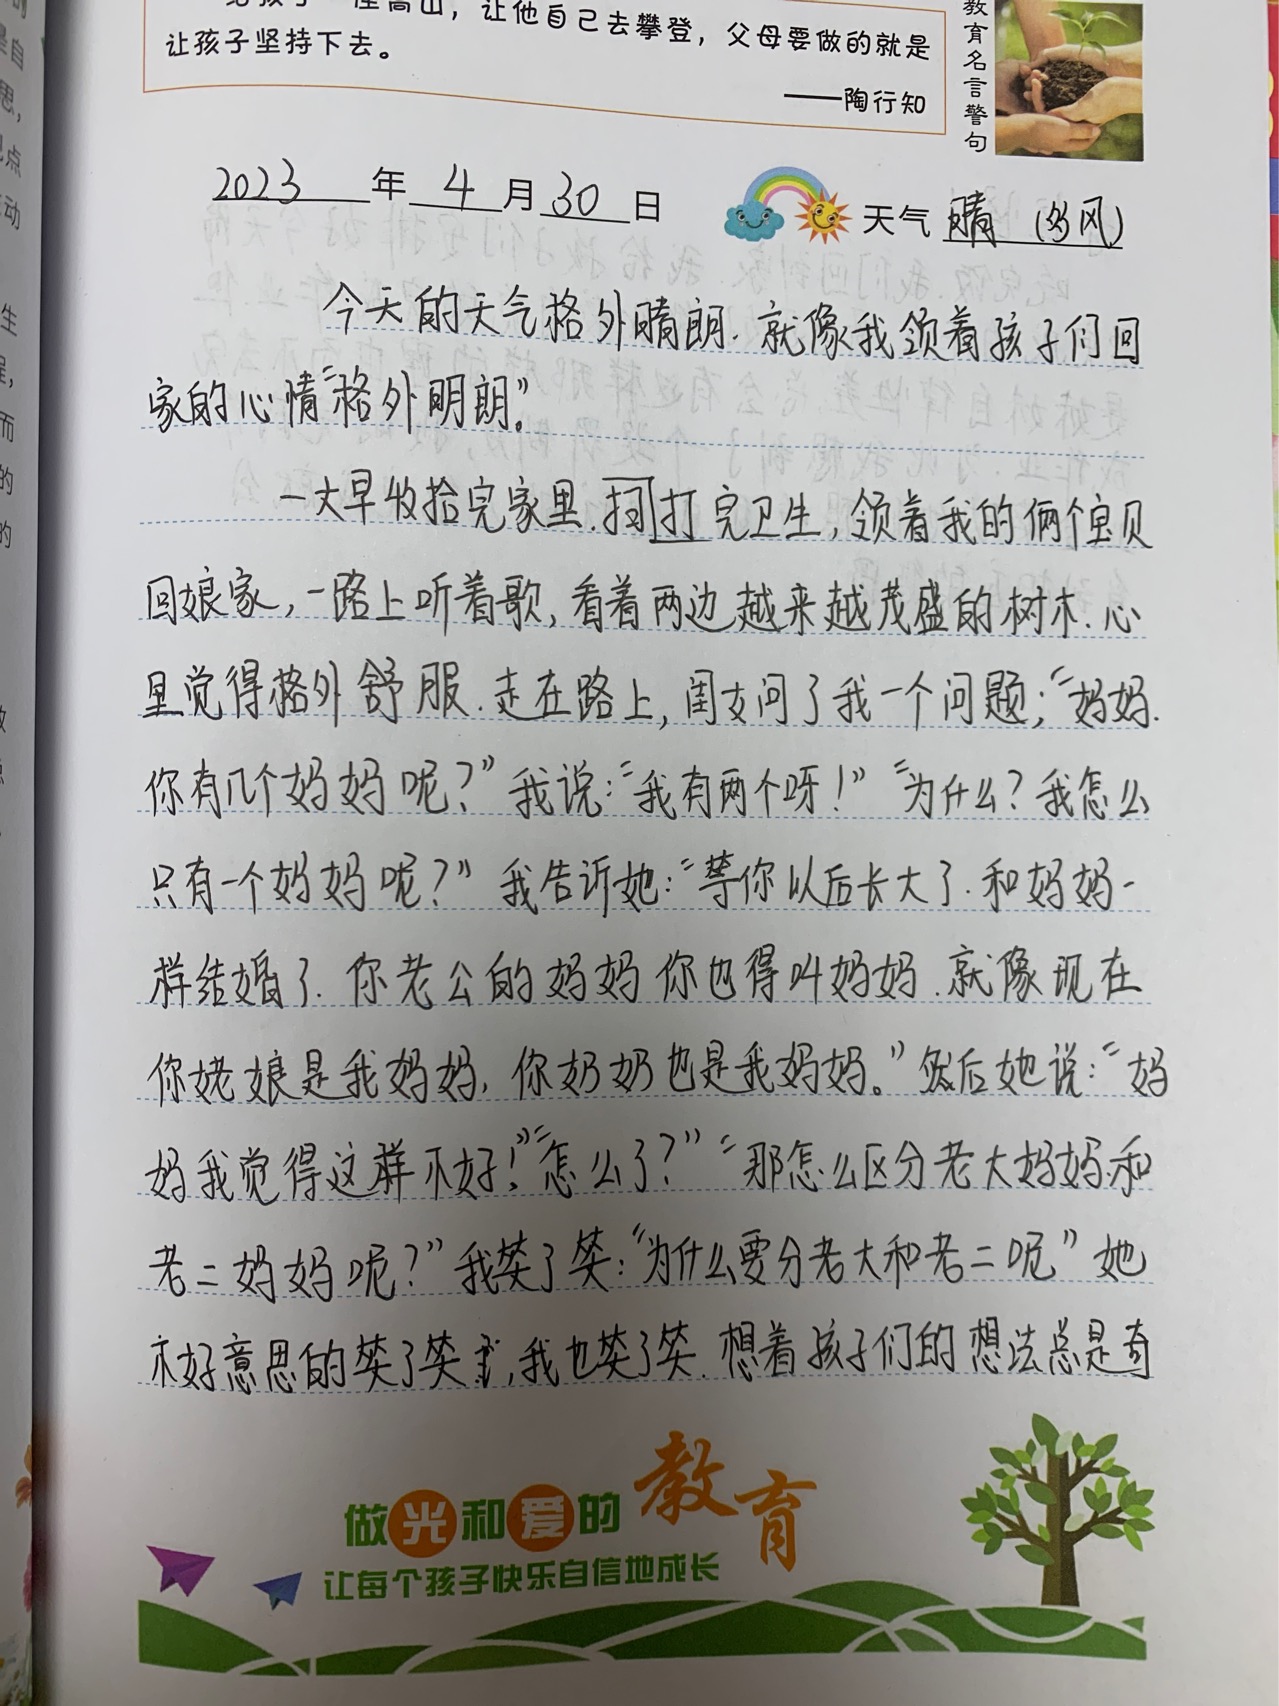 让他自己去攀登，父母要做的就是
让孩子坚持下去。
——陶行知
教育名言警句
2023年4月30日
天气 晴 (多风)
今天的天气格外晴朗.就像我领着孩子们回
家的心情“格外明朗”。
一大早收拾完家里.扫打完卫生,领着我的俩个宝贝
回娘家,一路上听着歌,看着两边越来越茂盛的树木.心
里觉得格外舒服.走在路上,闺女问了我一个问题;“妈妈.
你有几个妈妈呢?”我说:“我有两个呀!”“为什么?我怎么
只有一个妈妈呢?”我告诉她:“等你以后长大了.和妈妈一
样结婚了.你老公的妈妈你也得叫妈妈.就像现在
你姥娘是我妈妈,你奶奶也是我妈妈。”然后她说:“妈
妈我觉得这样不好!”“怎么了?”“那怎么区分老大妈妈和
老二妈妈呢?”我笑了笑:“为什么要分老大和老二呢”她
不好意思的笑了笑,我也笑了笑.想着孩子们的想法总是奇
做光和爱的教育
让每个孩子快乐自信地成长